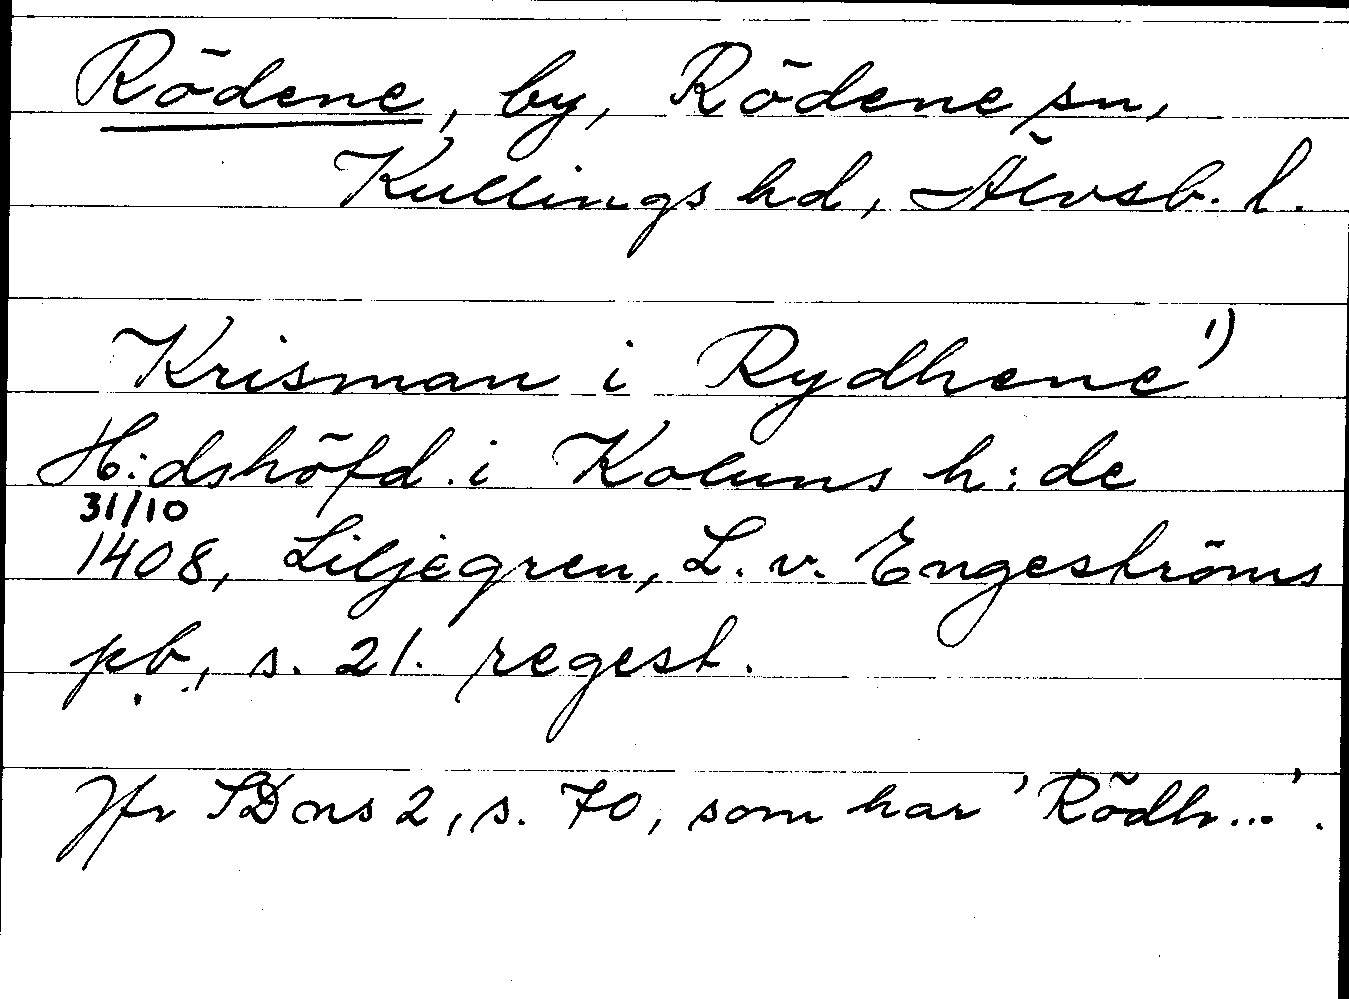 Rödene, by, Rödene sn,
Kullings hd, Älvsb. l.
Krisman i Rydhene 1)
H:dshöfd. i Koluns h:de
31/10
1408, Liljegren, L. v. Engeströms
pb., s. 21. regest.
Jfr SD ns 2, s. 70, som har 'Rödh...'.